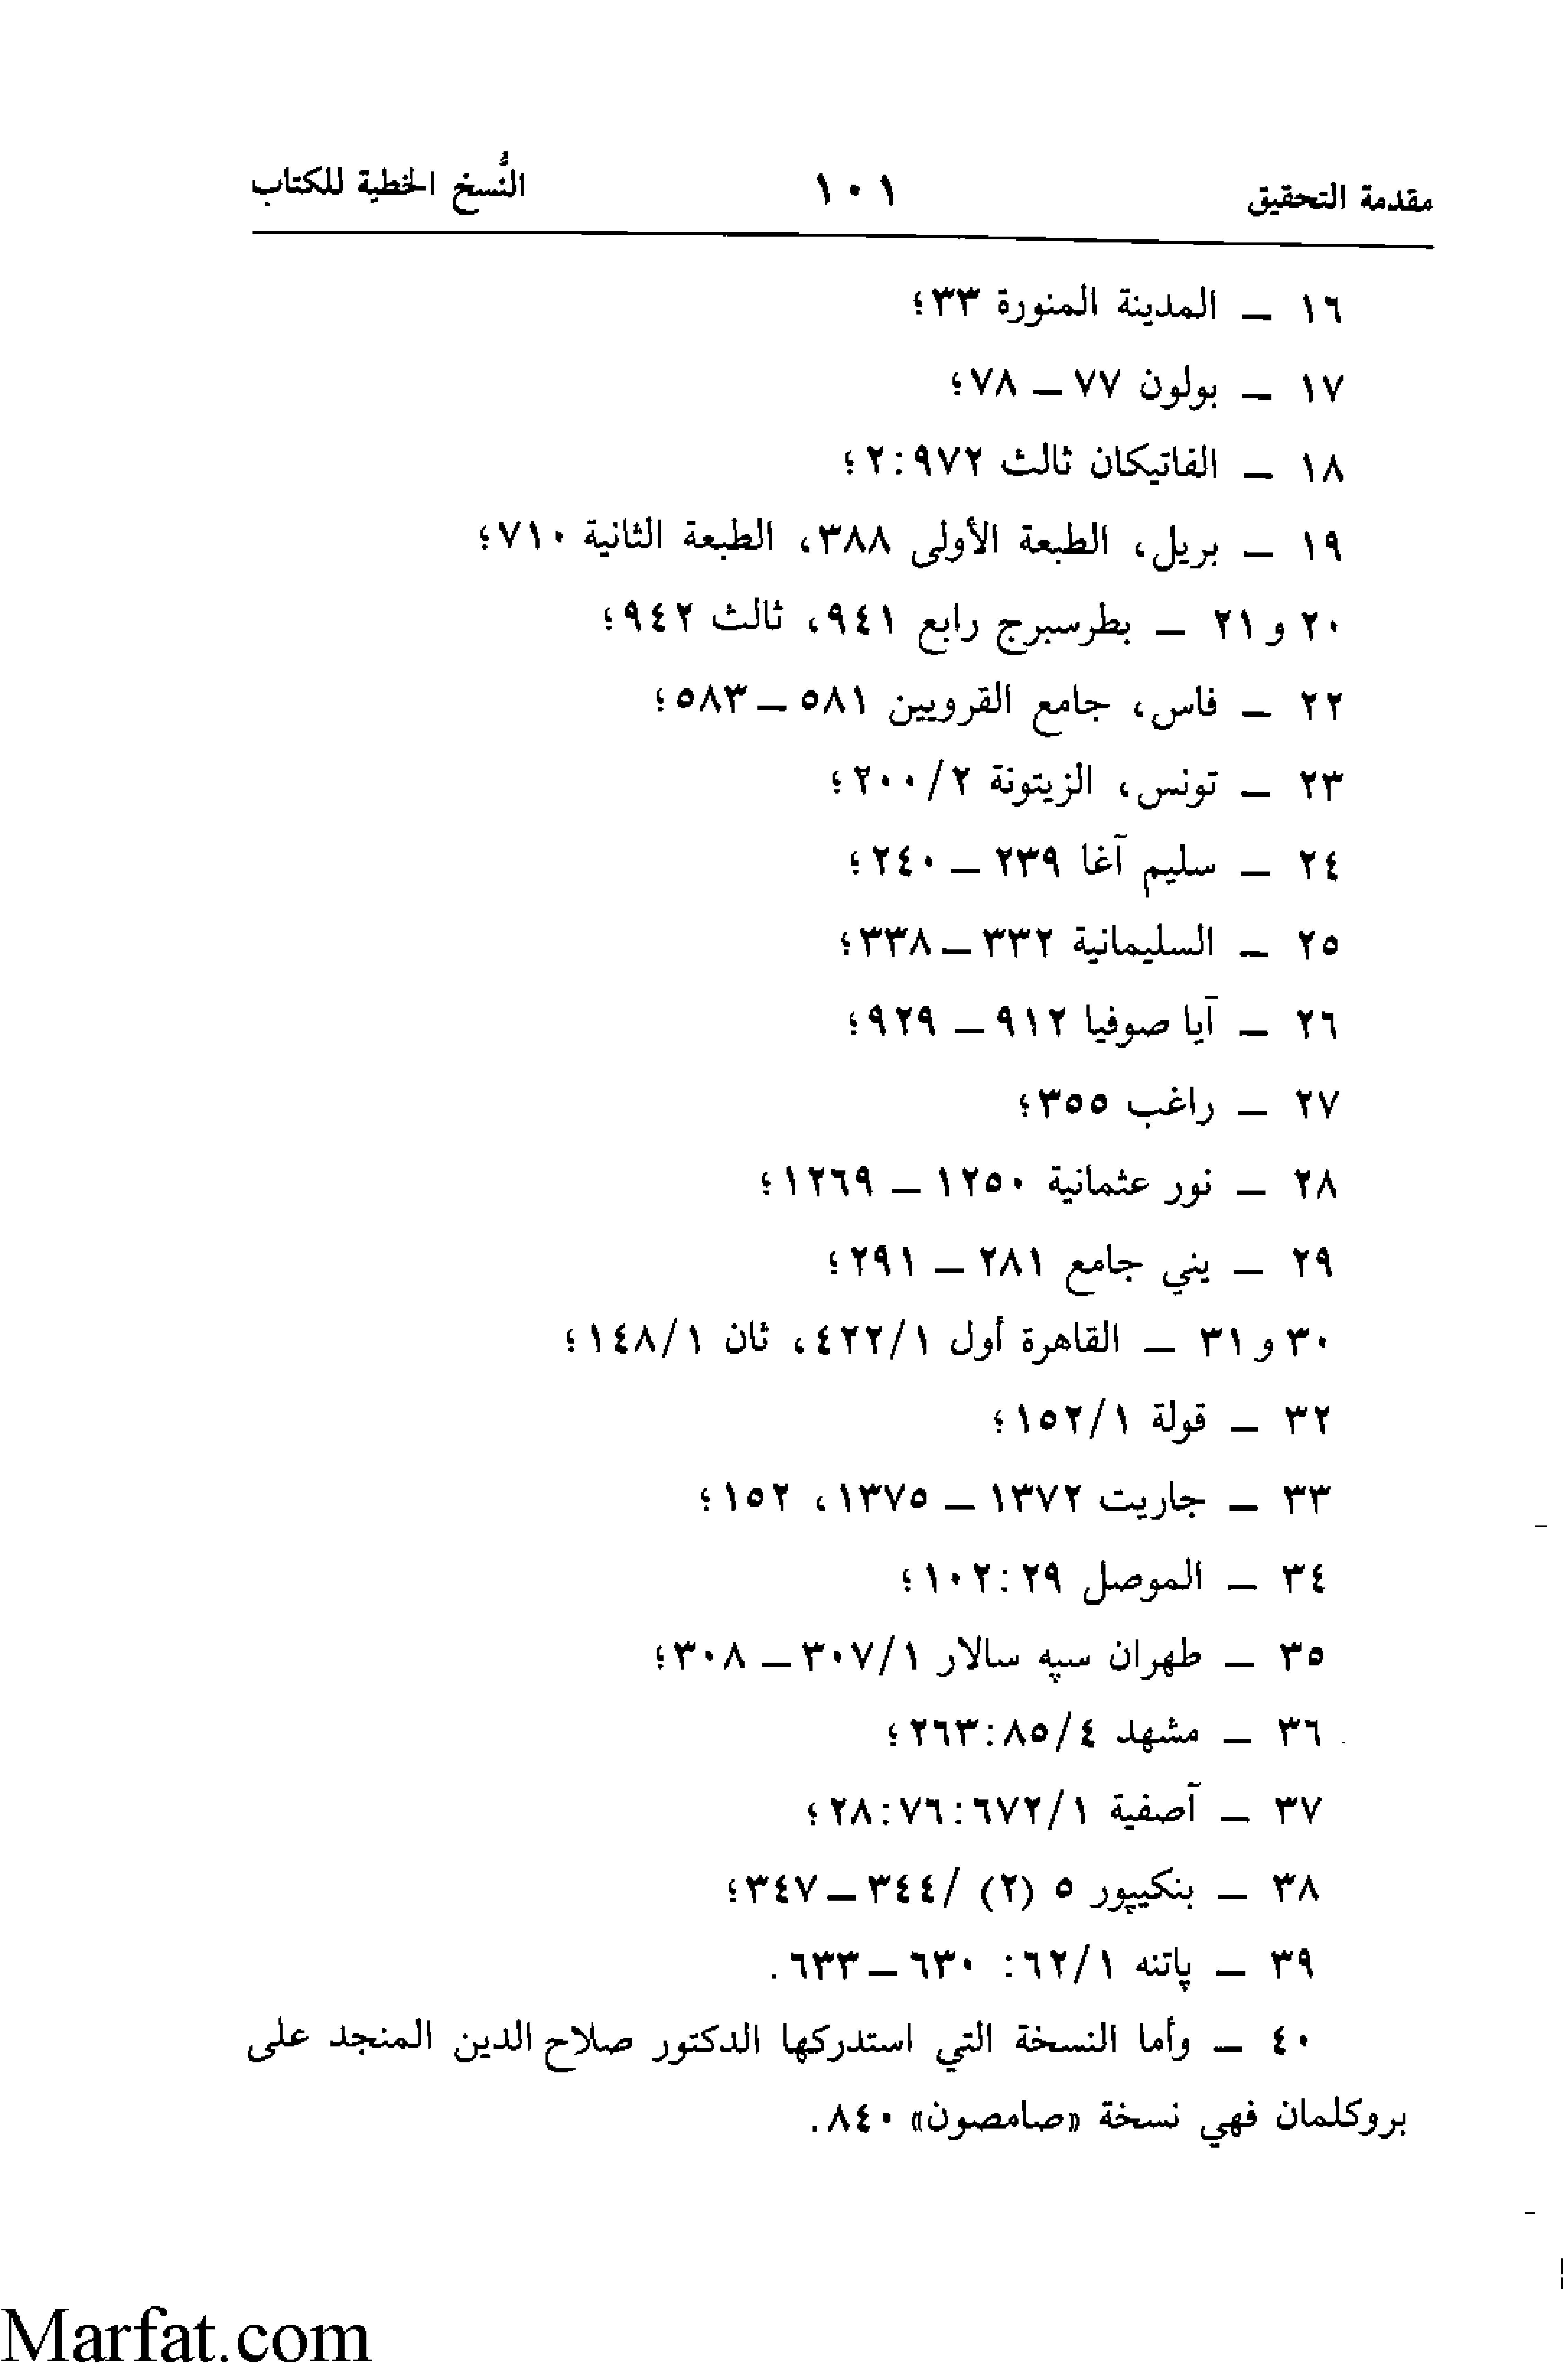 مقدمة التحقيق ١٠١ النُّسخ الخطية للكتاب
١٦ – المدينة المنورة ٣٣؛
١٧ – بولون ٧٧ – ٧٨؛
١٨ – الفاتيكان ثالث ٩٧٢:٢؛
١٩ – بريل، الطبعة الأولى ٣٨٨، الطبعة الثانية ٧١٠؛
٢٠ و٢١ – بطرسبرج رابع ٩٤١، ثالث ٩٤٢؛
٢٢ – فاس، جامع القرويين ٥٨١ – ٥٨٣؛
٢٣ – تونس، الزيتونة ٢٠٠/٢؛
٢٤ – سليم آغا ٢٣٩ – ٢٤٠؛
٢٥ – السليمانية ٣٣٢ – ٣٣٨؛
٢٦ – آيا صوفيا ٩١٢ – ٩٢٩؛
٢٧ – راغب ٣٥٥؛
٢٨ – نور عثمانية ١٢٥٠ – ١٢٦٩؛
٢٩ – يني جامع ٢٨١ – ٢٩١؛
٣٠ و٣١ – القاهرة أول ٤٢٢/١، ثان ١٤٨/١؛
٣٢ – قولة ١٥٢/١؛
٣٣ – جاريت ١٣٧٢ – ١٣٧٥، ١٥٢؛
٣٤ – الموصل ١٠٢:٢٩؛
٣٥ – طهران سپه سالار ٣٠٧/١ – ٣٠٨؛
٣٦ – مشهد ٢٦٣:٨٥/٤؛
٣٧ – آصفية ٢٨:٧٦:٦٧٢/١؛
٣٨ – بنكيپور ٥ (٢) /٣٤٤ – ٣٤٧؛
٣٩ – پاتنه ٦٢/١: ٦٣٠ – ٦٣٣.
٤٠ – وأما النسخة التي استدركها الدكتور صلاح الدين المنجد على
بروكلمان فهي نسخة «صامصون» ٨٤٠.
Marfat.com